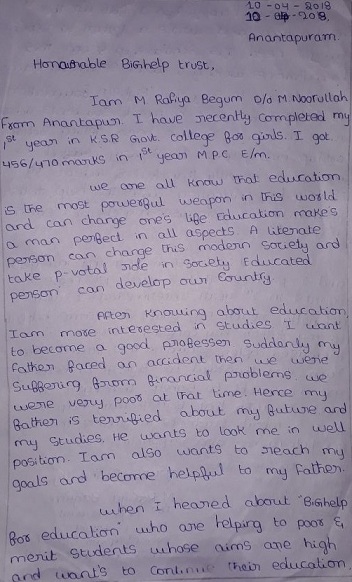 10 - 04 - 2018
Anantapuram.
Honourable Bighelp trust,
Iam M Rafiya Begum D/o M.Noorullah
From Anantapur. I have recently completed my
1st year in K.S.R Govt. College for girls. I got
456/470 marks in 1st year M.P.C E/m.
we are all know that education
is the most powerful weapon in this world
and can change one's life Education makes
a man perfect in all aspects. A literate
person can change this modern society and
take p-votal role in society Educated
person can develop our Country.
After knowing about education
Iam more interested in studies I want
to become a good professer suddanly my
father faced an accident then we were
suffering from financial problems. we
were very poor at that time. Hence my
father is terrified about my future and
my studies. He wants to look me in well
position. Iam also wants to reach my
goals and become helpful to my father.
when I heared about "Bighelp
for education" who are helping to poor &
merit students whose aims are high
and want's to continue their education.